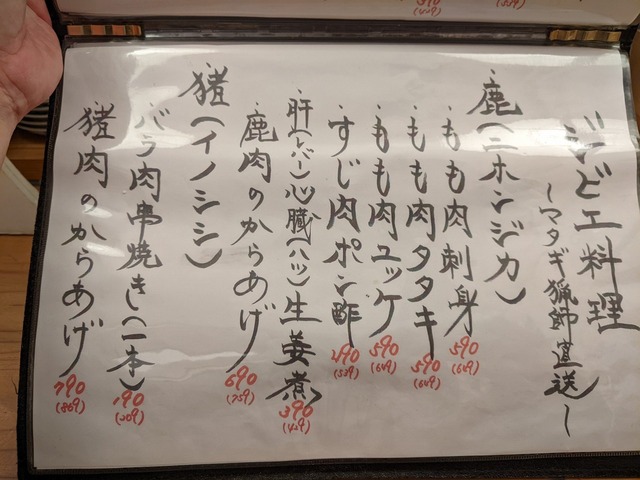 ジビエ料理
〜マタギ猟師直送〜
・鹿(ニホンジカ)
・もも肉刺身 590 (649)
・もも肉タタキ 590 (649)
・もも肉ユッケ 590 (649)
・すじ肉ポン酢 490 (539)
・肝(レバー)心臓(ハツ)生姜煮 390 (429)
・鹿肉のからあげ 690 (759)
・猪(イノシシ)
・バラ肉串焼き(一本) 190 (209)
・猪肉のからあげ 790 (869)